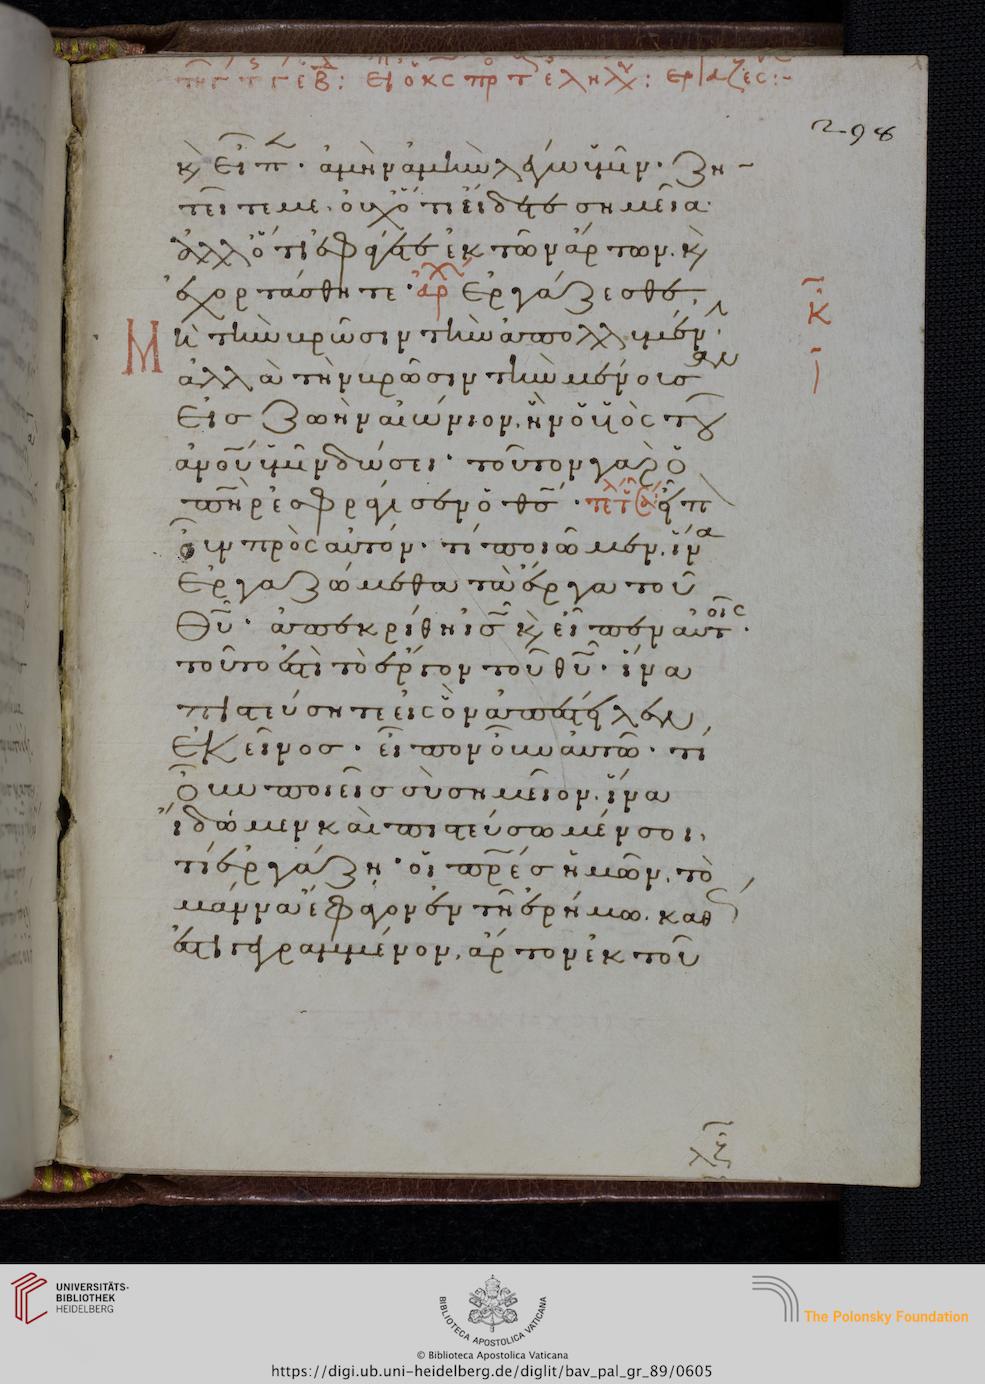 298
κ̀ εἶπ. ἀμὴν ἀμὴν λέγω ὑμῖν. ζη-
τεῖτέ με. οὐχ ὅτι εἴδετε σημεῖα.
ἀλλ' ὅτι ἐφάγετε ἐκ τῶν ἄρτων. κ̀
ἐχορτάσθητε. ἀρχ ἐργάζεσθε,
Μὴ τὴν βρῶσιν τὴν ἀπολλυμέν.
ἀλλὰ τὴν βρῶσιν τὴν μένουσαν
εἰς ζωὴν αἰώνιον, ἣν ὁ υἱὸς τοῦ
ἀνοῦ ὑμῖν δώσει. τοῦτον γὰρ ὁ
πηρ ἐσφράγισεν ὁ θς.
οὖν πρὸς αὐτόν. τί ποιῶμεν, ἵνα
ἐργαζώμεθα τὰ ἔργα τοῦ
θῦ. ἀπεκρίθη ις κ̀ εἶπεν αὐτοῖς.
τοῦτό ἐστι τὸ ἔργον τοῦ θῦ. ἵνα
πιστεύσητε εἰς ὃν ἀπέστειλεν
ἐκεῖνος. εἶπον οὖν αὐτῶ. τί
οὖν ποιεῖς σὺ σημεῖον, ἵνα
ἴδωμεν καὶ πιστεύσωμέν σοι,
τί ἐργάζη. οἱ πρες ἡμῶν, τὸ
μάννα ἔφαγον ἐν τῆ ἐρήμω. καθώς
ἐστι γεγραμμένον, ἄρτον ἐκ τοῦ
UNIVERSITÄTS-
BIBLIOTHEK
HEIDELBERG
BIBLIOTECA APOSTOLICA VATICANA
The Polonsky Foundation
© Biblioteca Apostolica Vaticana
https://digi.ub.uni-heidelberg.de/diglit/bav_pal_gr_89/0605